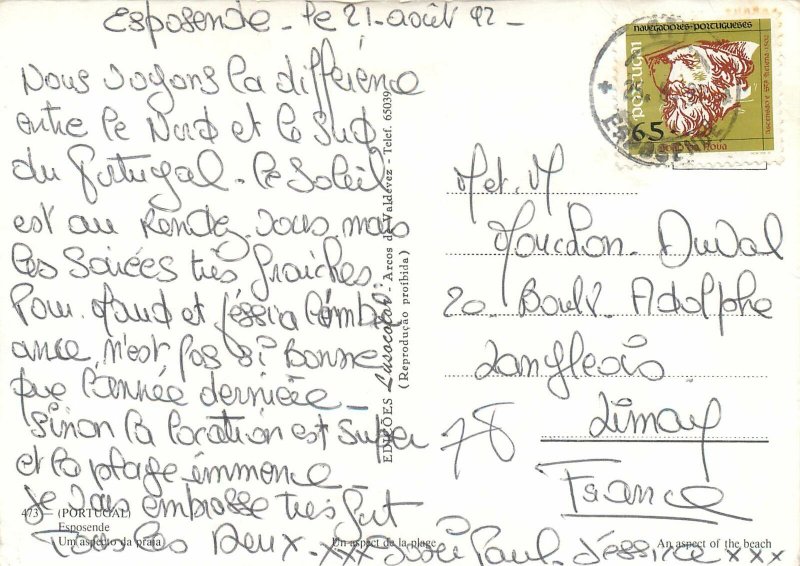 Esposende - le 21 août 92 -
Nous voyons la différence
entre le Nord et le Sud
du Portugal - le Soleil
est au Rendez-vous mais
les Soirées très fraîches.
Pour Maud et Jéssica l'ambi
ance n'est pas si Bonne
que l'année dernière -
Sinon la location est super
et la plage immense -
Je vous embrasse très fort
Tous les Deux. xxx Paul. Jéssica xxx
473 - (PORTUGAL)
Esposende
Um aspecto da praia
Un aspect de la plage
An aspect of the beach
EDIÇÕES Lusocolor - Arcos de Valdevez - Telef. 65039
(Reprodução proibida)
NAVEGADORES PORTUGUESES
PORTUGAL
6.5
ESPOSENDE
M et M
Mouchon-Duval
20 Boulv. Adolphe
Langlois
Limay
78
France